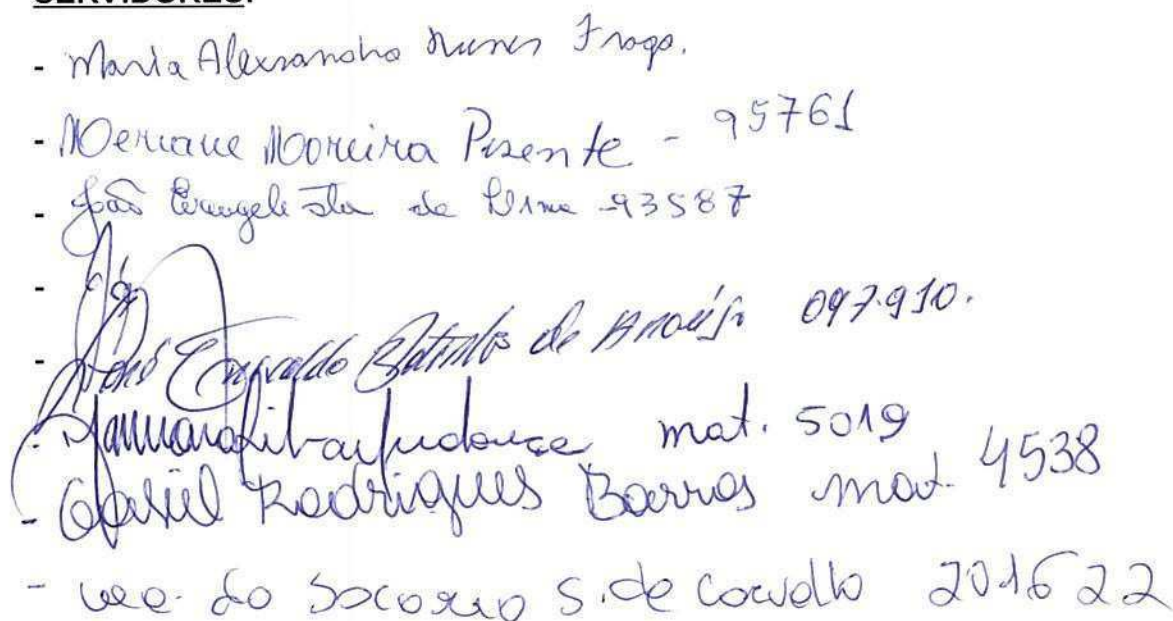 SERVIDORES:
- Maria Alexsandra Nunes Frago.
- Meriane Moreira Pisente - 95761
- João Evangelista de Lima - 93587
-
- José de 097.910.
- mat. 5019
- Rodrigues Barros mat. 4538
- do Socorro S. de Carvalho 201622